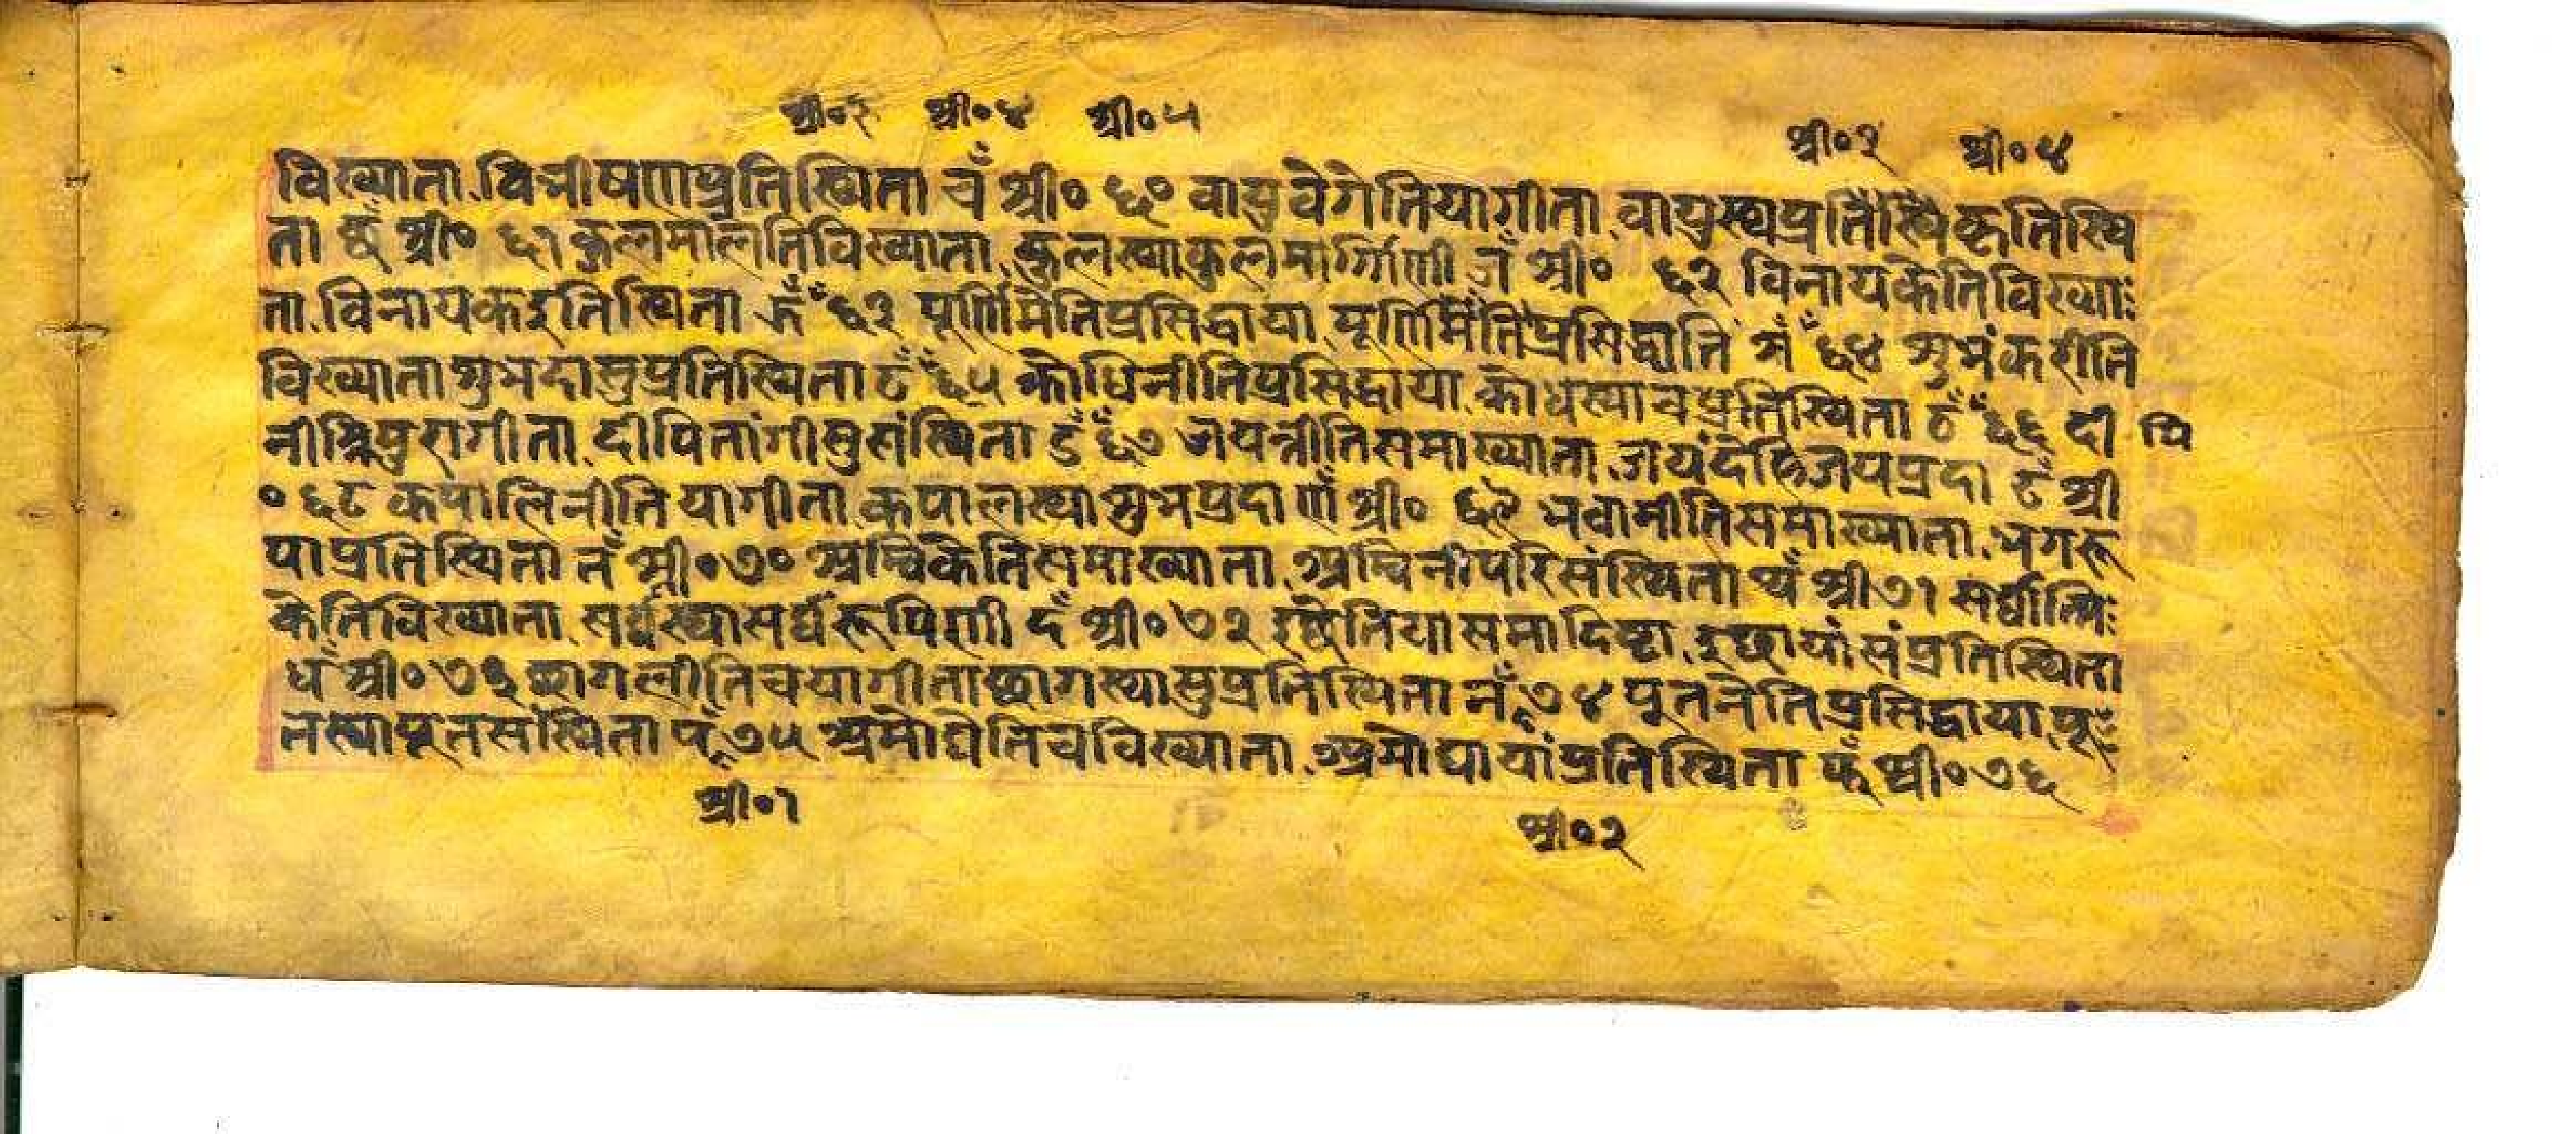 श्री०३ श्री०४ श्री०५ श्री०३ श्री०४
विख्याता विभीषणाप्रतिस्थिता चँ श्री० ६० वायुवेगेतियागीता वायुस्थप्रतिस्थैकृतिस्थि
ता छँ श्री० ६१ कुलमालतिविख्याता कुलस्थाकुलमार्गिणी जँ श्री० ६२ विनायकेतिविख्याः
ता विनायकइतिस्थिता ६३ पूर्णिमेतिप्रसिद्धाया पूर्णिमेतिप्रसिद्धाति ६४ शुभंकरीति
विख्याता शुभदासुप्रतिस्थिता ६५ क्रोधिनीतिप्रसिद्धाया क्रोधस्थाचप्रतिस्थिता ठँ ६६ दी पि
नीत्रिपुरागीता दीपितांगीसुसंस्थिता डँ ६७ जयन्तीतिसमाख्याता जयंदेहिजयप्रदा ढँ श्री
०६८ कपालिनीतियागीता कपालस्थाशुभप्रदा णँ श्री० ६९ भवानीतिसमाख्याता भगरू
पाप्रतिस्थिता तँ श्री०७० अम्बिकेतिसमाख्याता अम्बिनीपरिसंस्थिता थँ श्री७१ सर्व्वात्मिः
केतिविख्याता सर्व्वस्थासर्व्वरूपिणी दँ श्री०७२ इछेतियासमादिष्टा इछायांसंप्रतिस्थिता
धँ श्री०७३ छागलीतिचयागीताछागस्थासुप्रतिस्थिता नँ ७४ पूतनेतिप्रसिद्धाया पूः
तस्थापूतसंस्थिता पँ ७५ अमोघेतिचविख्याता अमोघायांप्रतिस्थिता फँ श्री०७६
श्री०१ श्री०२